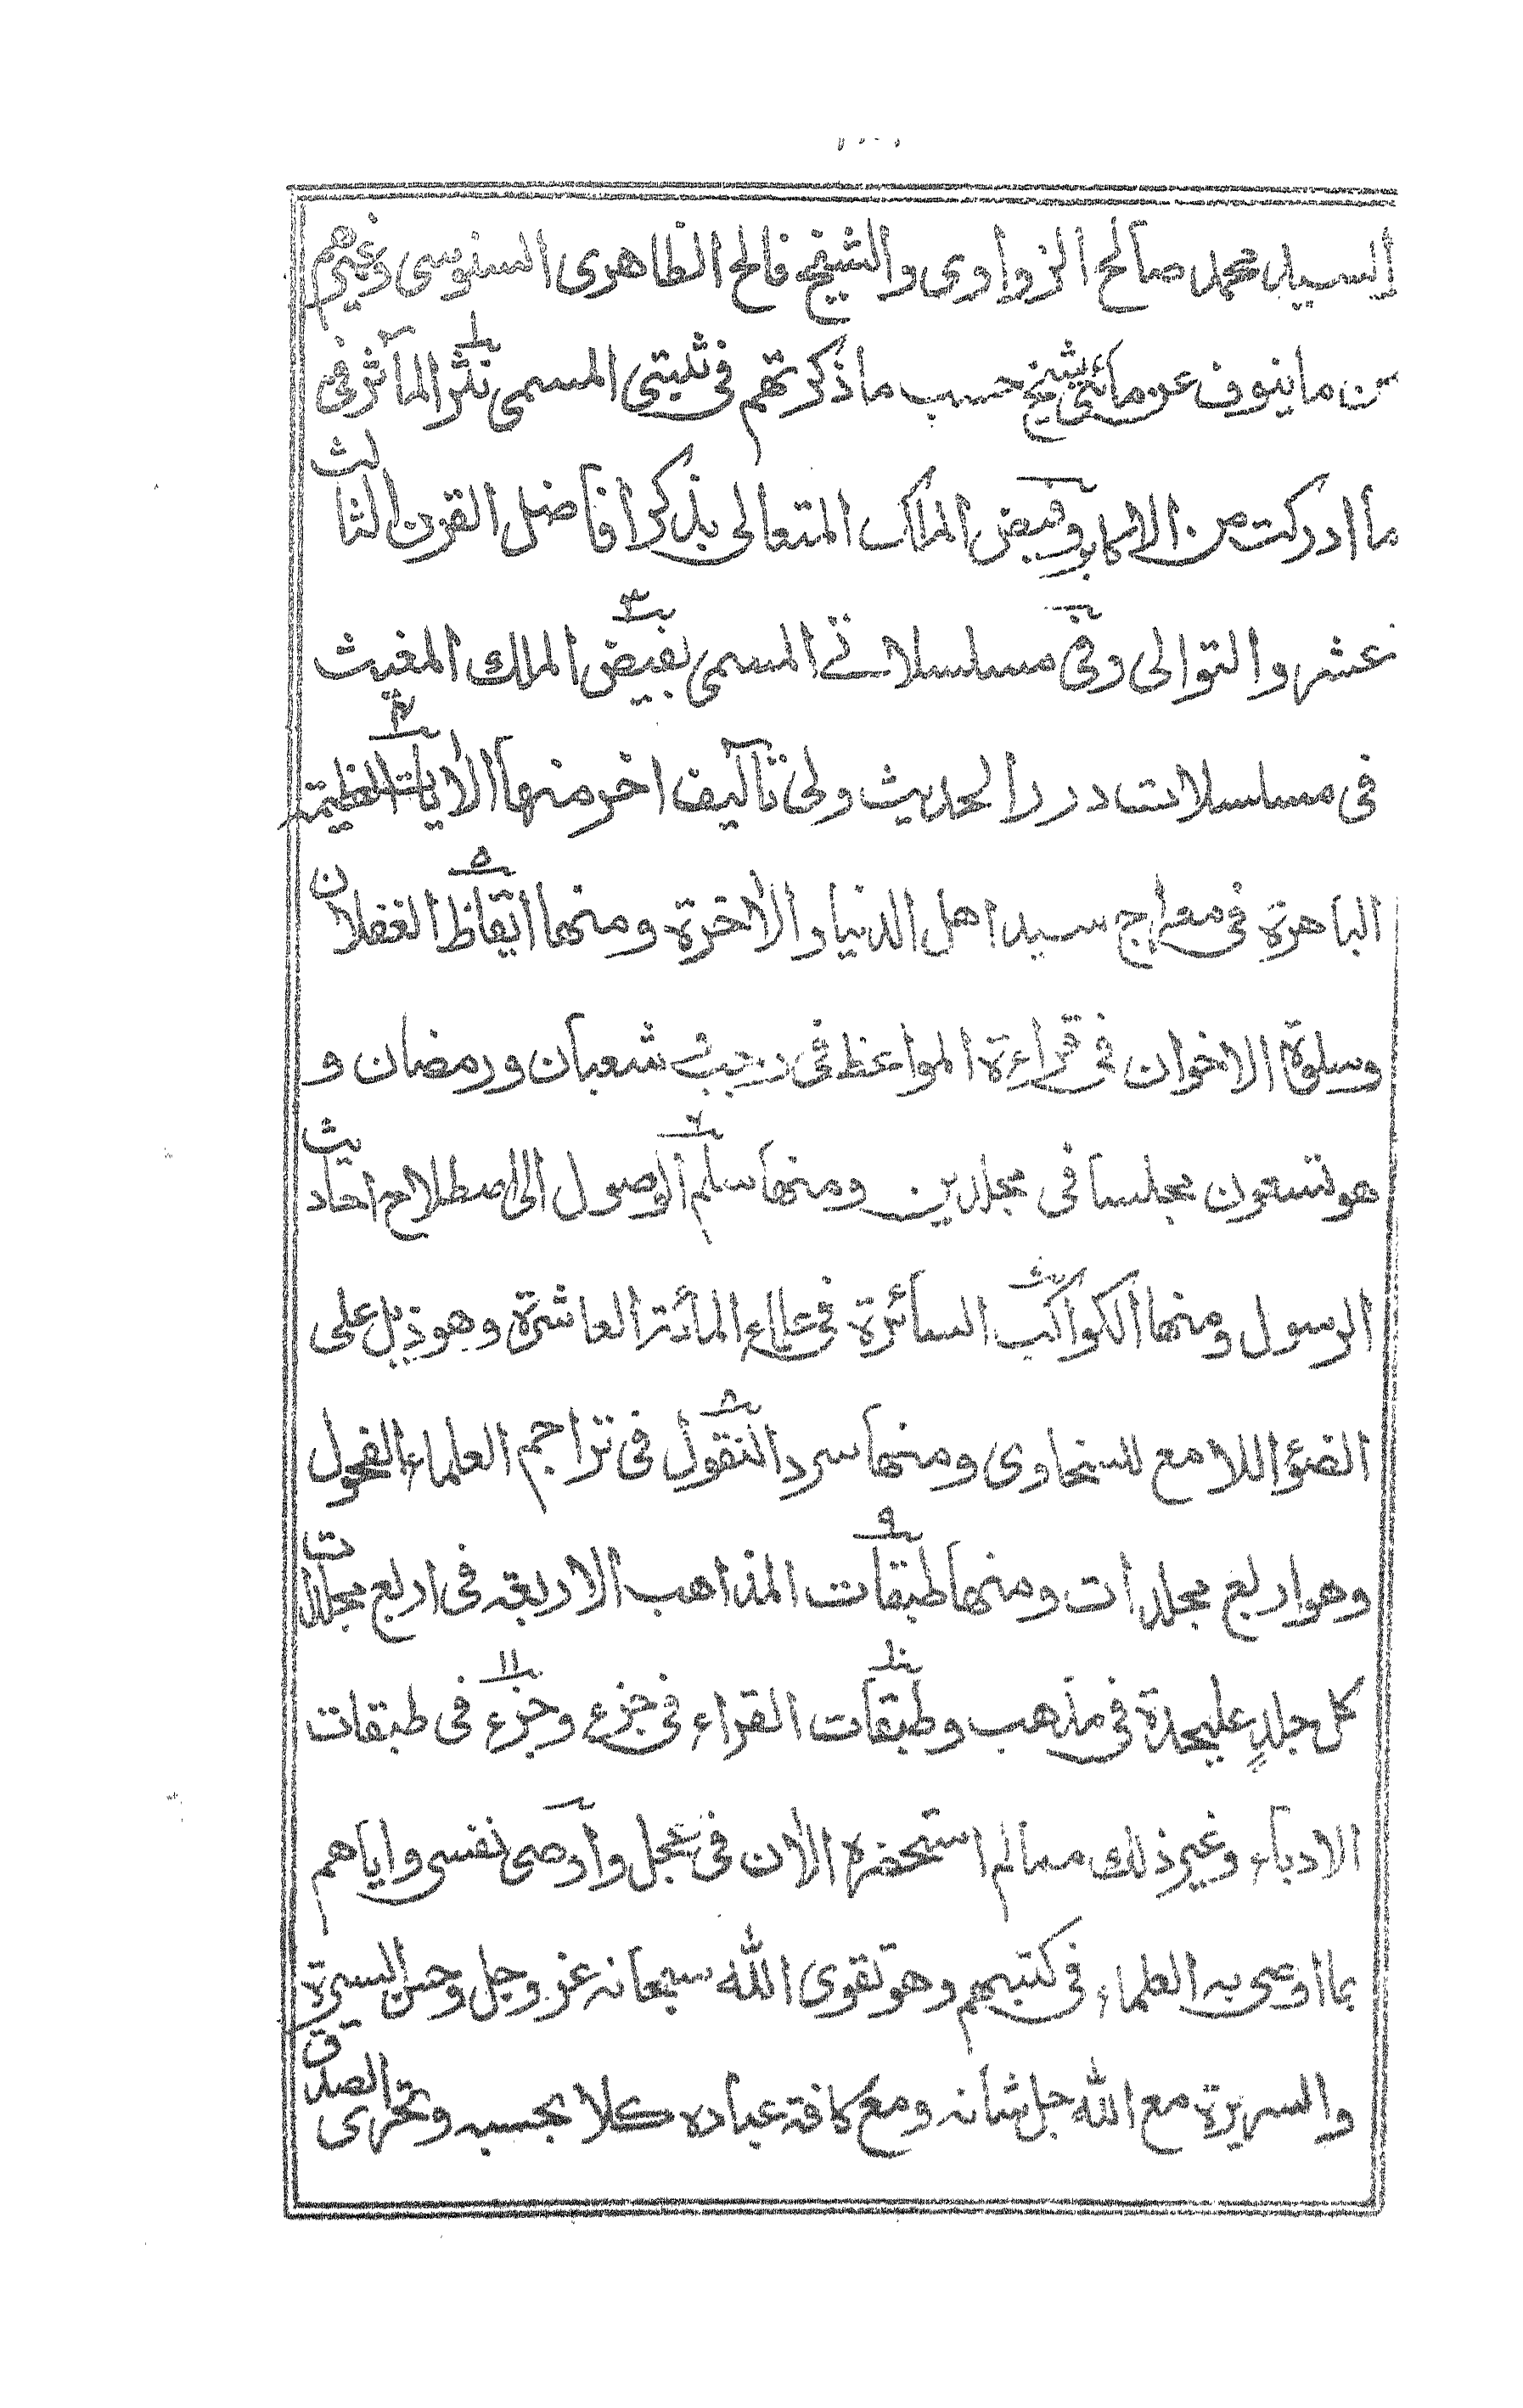 السيد محمد صالح الزواوى والشيخ فالح الظاهرى السنوسى وغيرهم
من ما ينوف عن مائتى شيخ حسب ما ذكرتهم فى ثبتى المسمى نثر المآثر فى
ما ادركت من الاكابر وفيض الملك المتعالى بذكر افاضل القرن الثالث
عشر والتوالى وفى مسلسلاتى المسمى بفيض الملك المغيث
فى مسلسلات درر الحديث ولى تآليف اخر منها الآيات العظيمة
الباهرة فى معراج سيد اهل الدنيا والآخرة ومنها ايقاظ الغفلان
وسلوة الاخوان فى قراءة المواعظ فى رجب شعبان ورمضان و
هو تسعون مجلسا فى مجلدين ومنها سلم الوصول الى اصطلاح احاديث
الرسول ومنها الكواكب السائرة فى علماء المأئة العاشرة وهو ذيل على
الضوء اللامع للسخاوى ومنها سرد النقول فى تراجم العلماء الفحول
وهو اربع مجلدات ومنها طبقات المذاهب الاربعة فى اربع مجلدات
كل جلدٍ عليحدة فى مذهب وطبقات القراء فى جزء وجزء فى طبقات
الادباء وغير ذلك مما لم استحضره الآن فى عجل وأوصى نفسى واياهم
بما اوصى به العلماء فى كتبهم وهو تقوى الله سبحانه عز وجل وحسن السيرة
والسريرة مع الله جل شانه ومع كافة عباده كلا بحسبه وتحرى الصدق